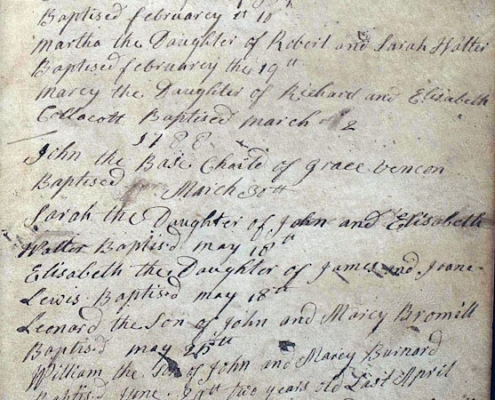 Baptised februarey 1st 10
Martha the Daughter of Robert and Sarah Hatter
Baptised februarey the 19th
Marcy the Daughter of Richard and Elisabeth
Collacott Baptised March 2
1788
John the Base Chaild of Grace Vencon
Baptised March 30th
Sarah the Daughter of John and Elisabeth
Walter Baptis'd may 18th
Elisabeth the Daughter of James and Joane
Lewis Baptis'd may 18th
Leonard the Son of John and Marcy Bromill
Baptis'd may 25th
William the Son of John and Marcy Burnard
Baptis'd June 29th two years old Last April